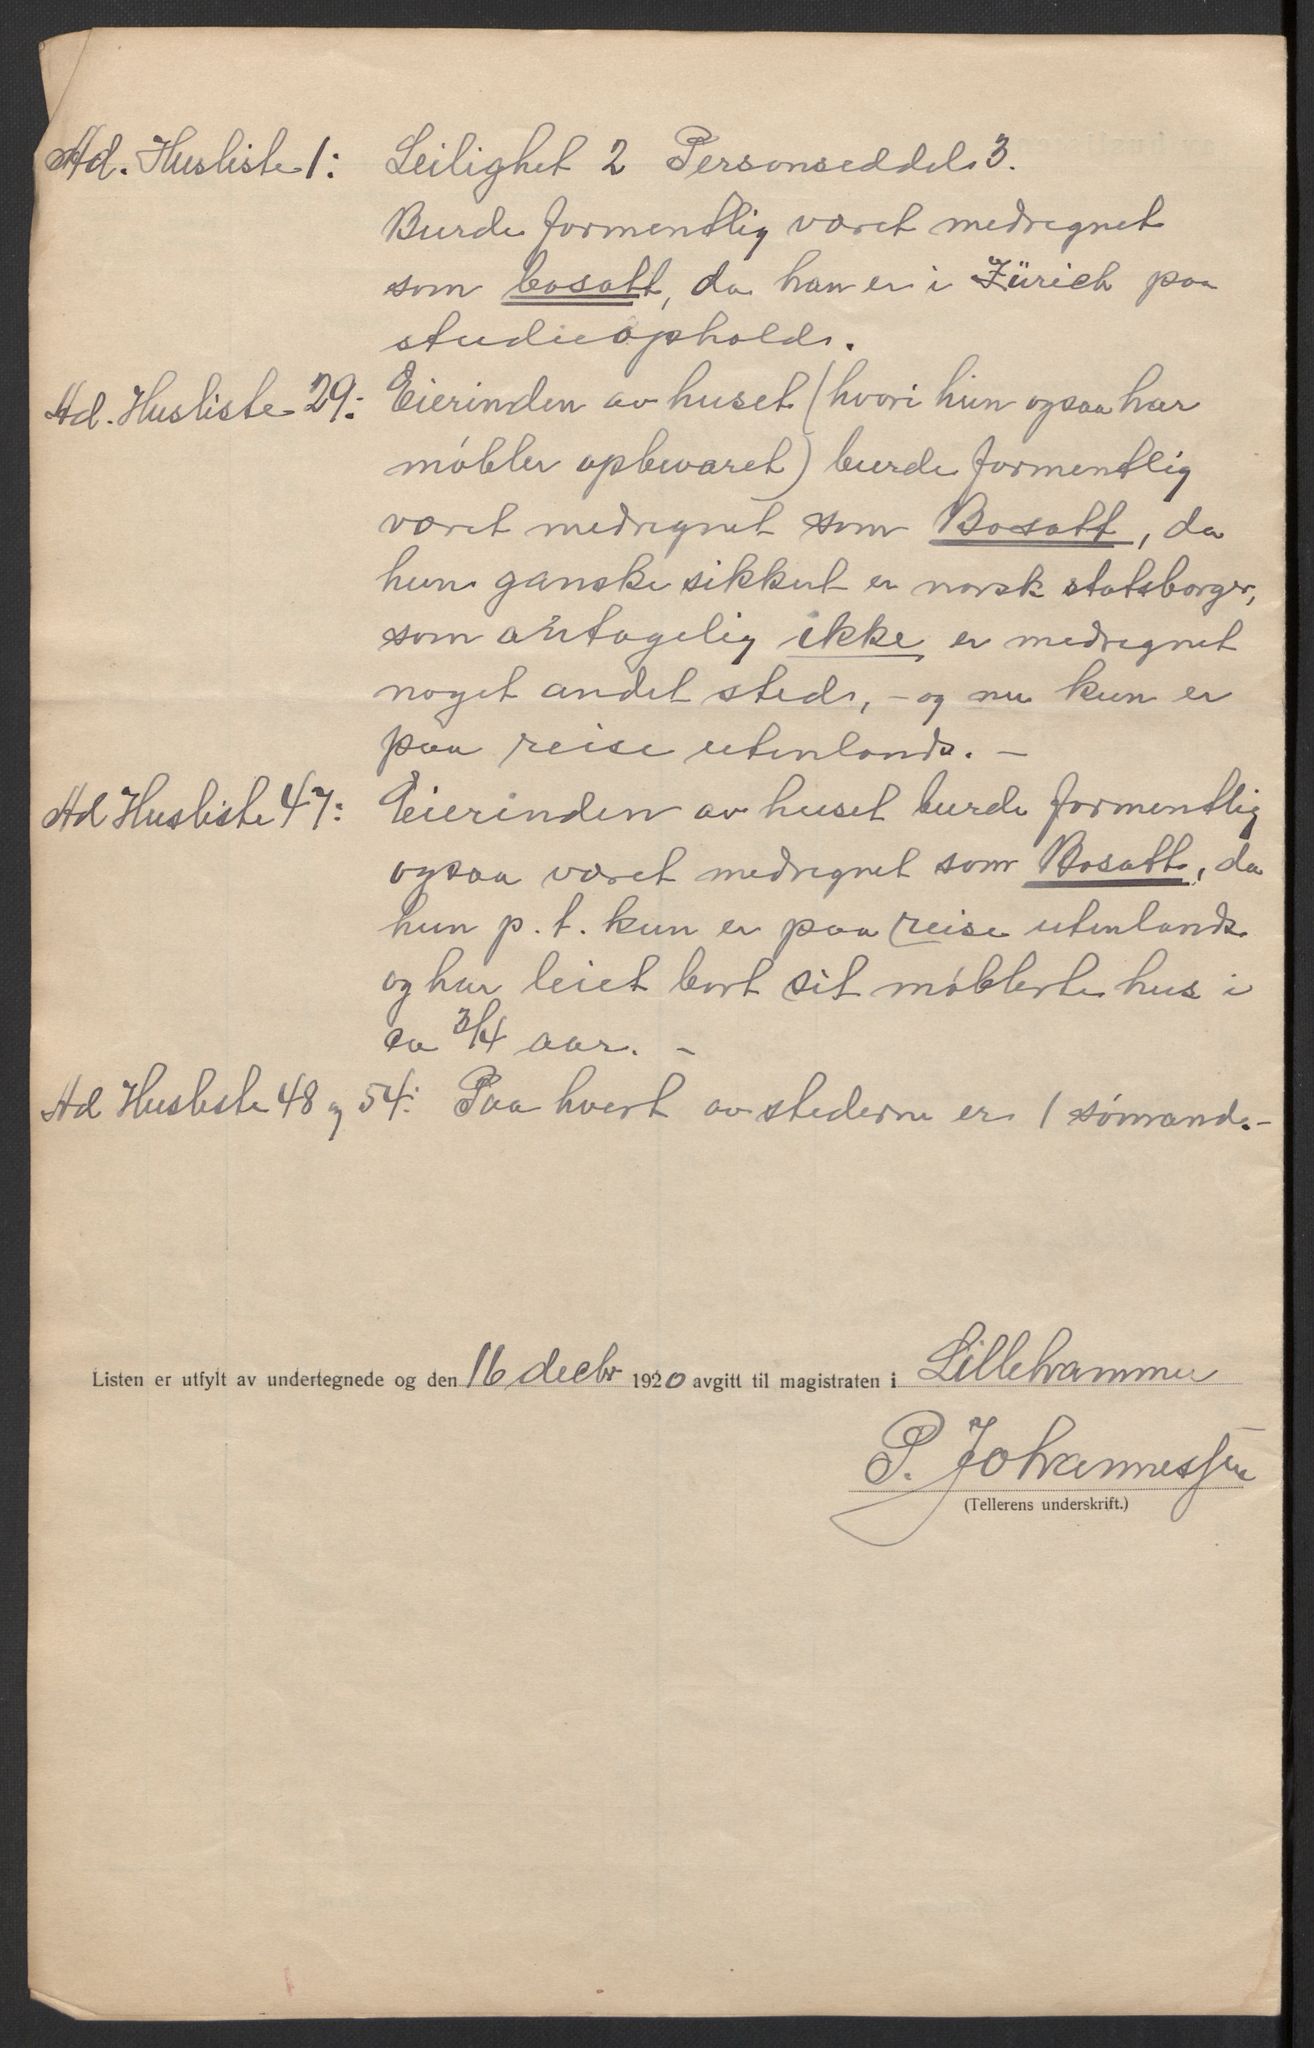 Ad. Husliste 1: Leilighet 2 Personseddel 3.
Burde formentlig været medregnet
som bosatt, da han er i Zürich paa
studieophold.
Ad. Husliste 29: Eierinden av huset (hvori hun ogsaa har
møbler opbevaret) burde formentlig
været medregnet som Bosatt, da
hun ganske sikkert er norsk statsborger,
som antagelig ikke er medregnet
noget andet sted, - og nu kun er
paa reise utenlands. -
Ad Husliste 47: Eierinden av huset burde formentlig
ogsaa været medregnet som Bosatt, da
hun p. t. kun er paa reise utenlands
og har leiet bort sit møblerte hus i
ca 3/4 aar. -
Ad Husliste 48 og 54: Paa hvert av stederne er 1 sømand. -
Listen er utfylt av undertegnede og den 16 decbr 1920 avgitt til magistraten i Lillehammer
P. Johannessen
(Tellerens underskrift.)